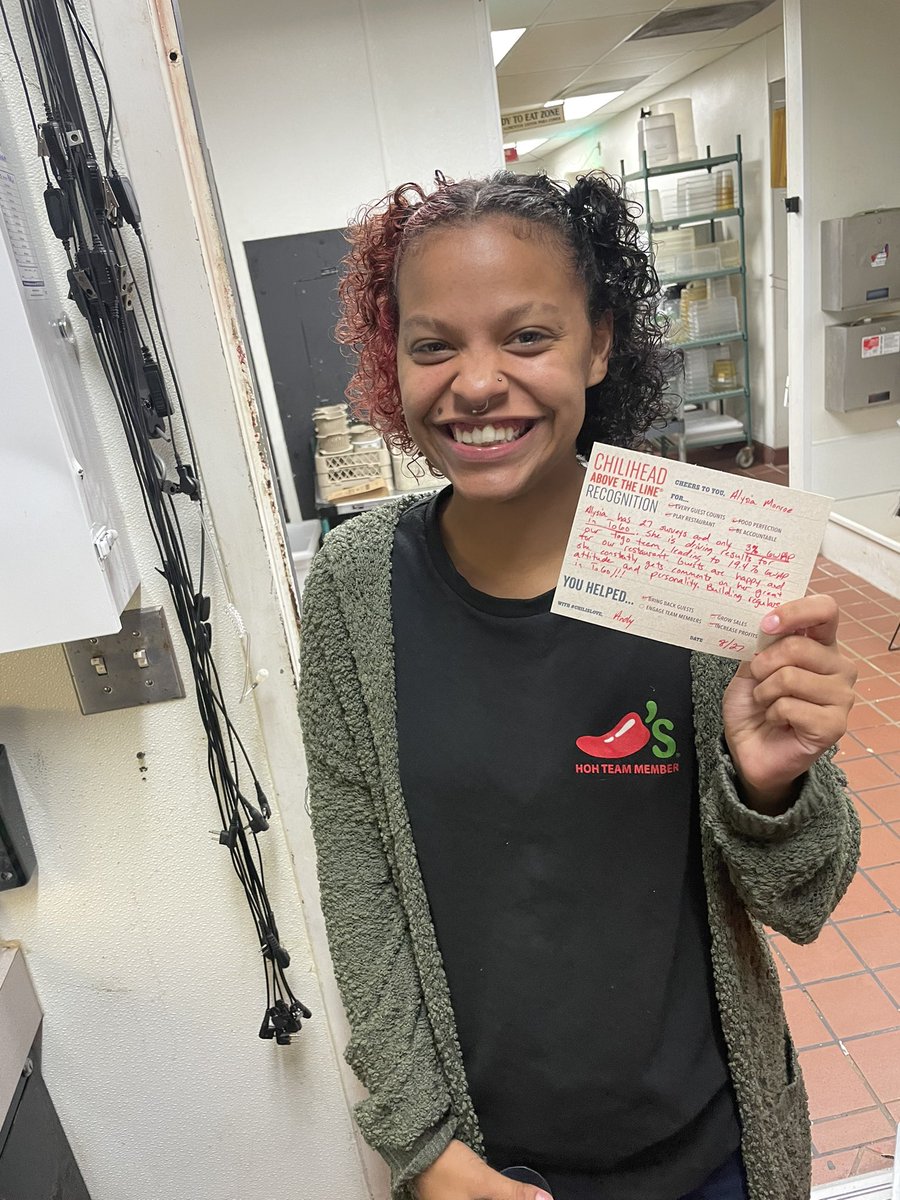 DY TO EAT ZONE
CHILIHEAD
ABOVE THE LINE®
RECOGNITION
CHEERS TO YOU, Alysia Monroe
FOR...
EVERY GUEST COUNTS
FOOD PERFECTION
PLAY RESTAURANT
BE ACCOUNTABLE
Alysia has 27 surveys and only 3% GWAP
in ToGo. She is driving results for
our ToGo team leading to 1.94% GWAP
for our restaurant. Guests are happy and
she constantly gets comments on her great
attitude and personality. Building regulars
in ToGo!!!
YOU HELPED...
BRING BACK GUESTS
GROW SALES
ENGAGE TEAM MEMBERS
INCREASE PROFITS
WITH #CHILISLOVE, Andy
DATE 8/27
'S
HOH TEAM MEMBER